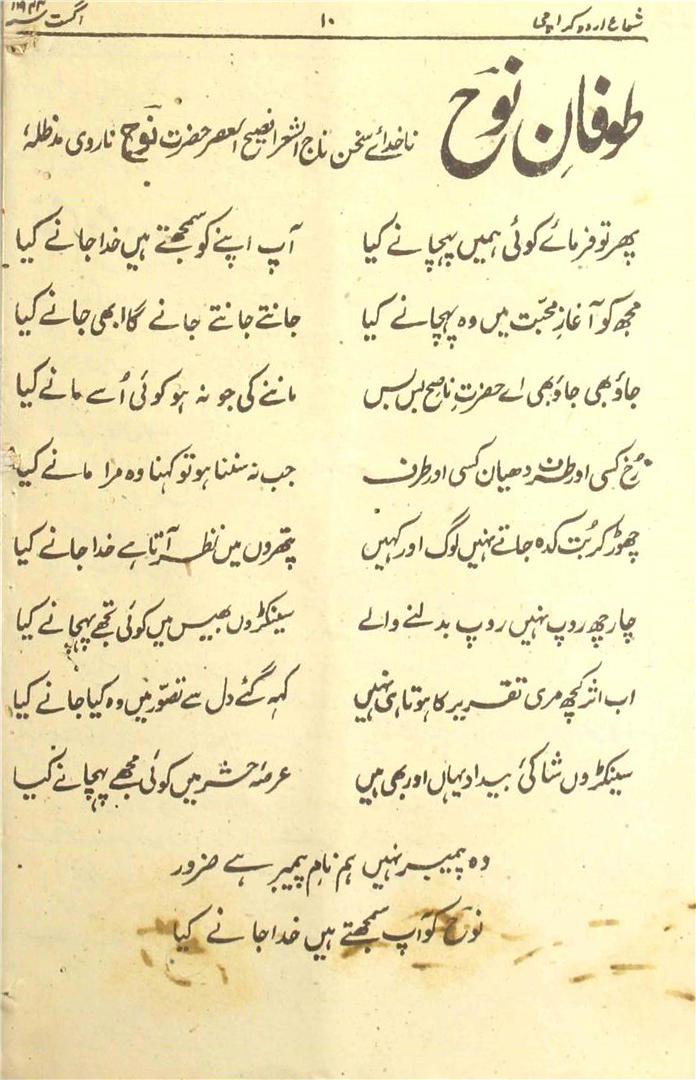 شعاع اردو کراچی ۱۰ اگست ۱۹۴۳ء
طوفانِ نوح
ناخدائے سخن تاج الشعرا فصیح العصر حضرت نوح ناروی مدظلہٗ
پھر تو فرمائے کوئی ہمیں پہچانے کیا آپ اپنے کو سمجھتے ہیں خدا جانے کیا
مجھ کو آغازِ محبّت میں وہ پہچانے کیا جانتے جانتے جانے گا ابھی جانے کیا
جاؤ بھی جاؤ بھی اے حضرتِ ناصح بس بس ماننے کی جو نہ ہو کوئی اُسے مانے کیا
رُخ کسی اور طرف دھیان کسی اور طرف جب نہ سننا ہو تو کہنا وہ مرا مانے کیا
چھوڑ کر بُت کدہ جاتے نہیں لوگ اور کہیں پتھروں میں نظر آتا ہے خدا جانے کیا
چار چھ روپ نہیں روپ بدلنے والے سینکڑوں بھیس میں کوئی تجھے پہچانے کیا
اب اثر کچھ مری تقریر کا ہوتا ہی نہیں کہہ گئے دل سے تصوّر میں وہ کیا جانے کیا
سینکڑوں شاکیٔ بیداد یہاں اور بھی ہیں عرصۂ حشر میں کوئی مجھے پہچانے کیا
وہ پیمبر نہیں ہم نام پیمبر ہے ضرور
نوح کو آپ سمجھتے ہیں خدا جانے کیا